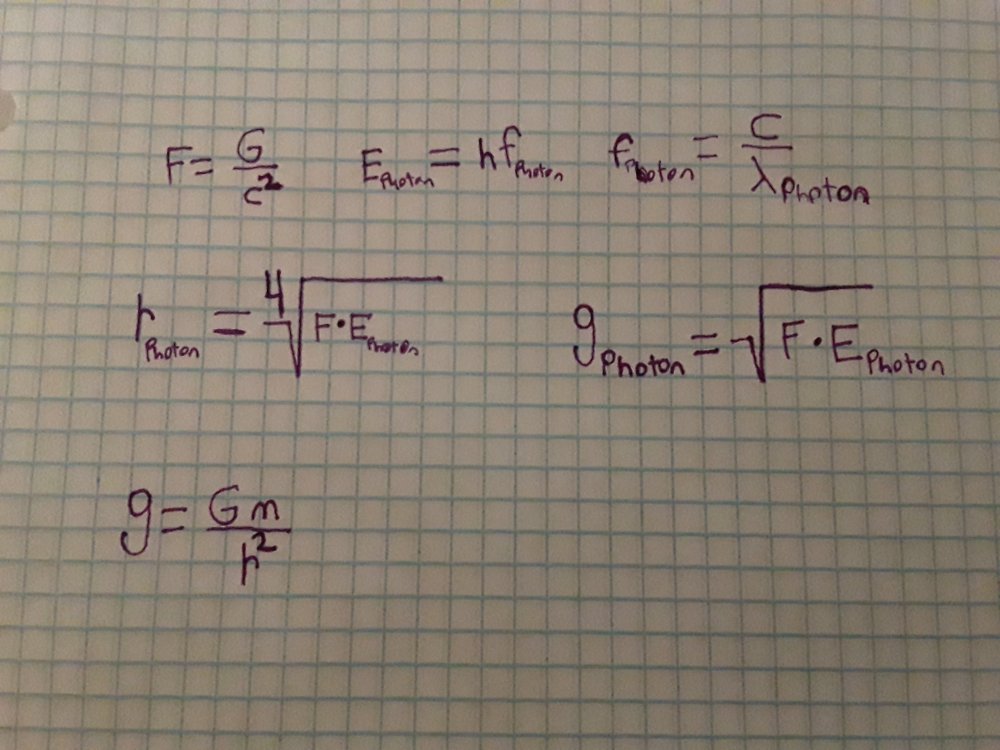 F = G/c² E_Photon = hf_Photon f_Photon = C/λ_Photon
r_Photon = ⁴√(F·E_Photon) g_Photon = √(F·E_Photon)
g = Gm/r²